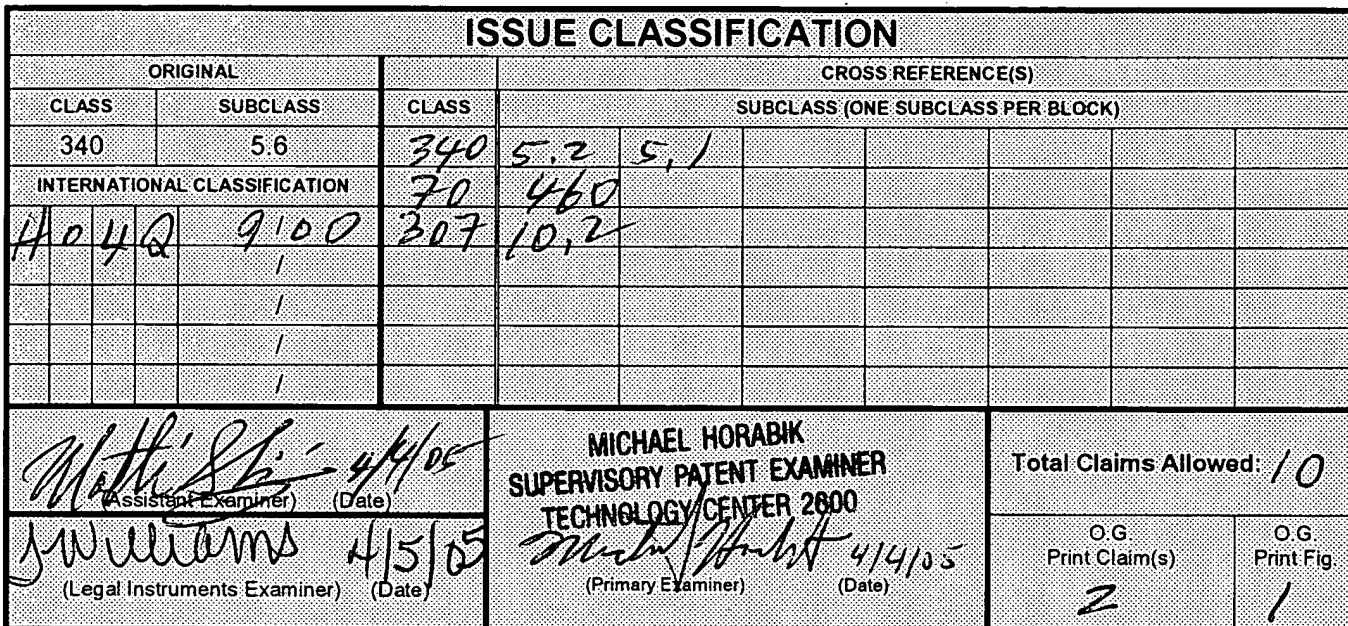 ISSUE CLASSIFICATION
ORIGINAL CROSS REFERENCE(S)
CLASS SUBCLASS CLASS SUBCLASS (ONE SUBCLASS PER BLOCK)
340 5.6 340 5.2 5.1
INTERNATIONAL CLASSIFICATION 70 460
H 0 4 Q 9/00 307 10.2
/
/
/
/
4/4/05
(Assistant Examiner) (Date)
J Williams 4/5/05
(Legal Instruments Examiner) (Date)
MICHAEL HORABIK
SUPERVISORY PATENT EXAMINER
TECHNOLOGY CENTER 2600
4/4/05
(Primary Examiner) (Date)
Total Claims Allowed: 10
O.G. Print Claim(s)
2
O.G. Print Fig.
1